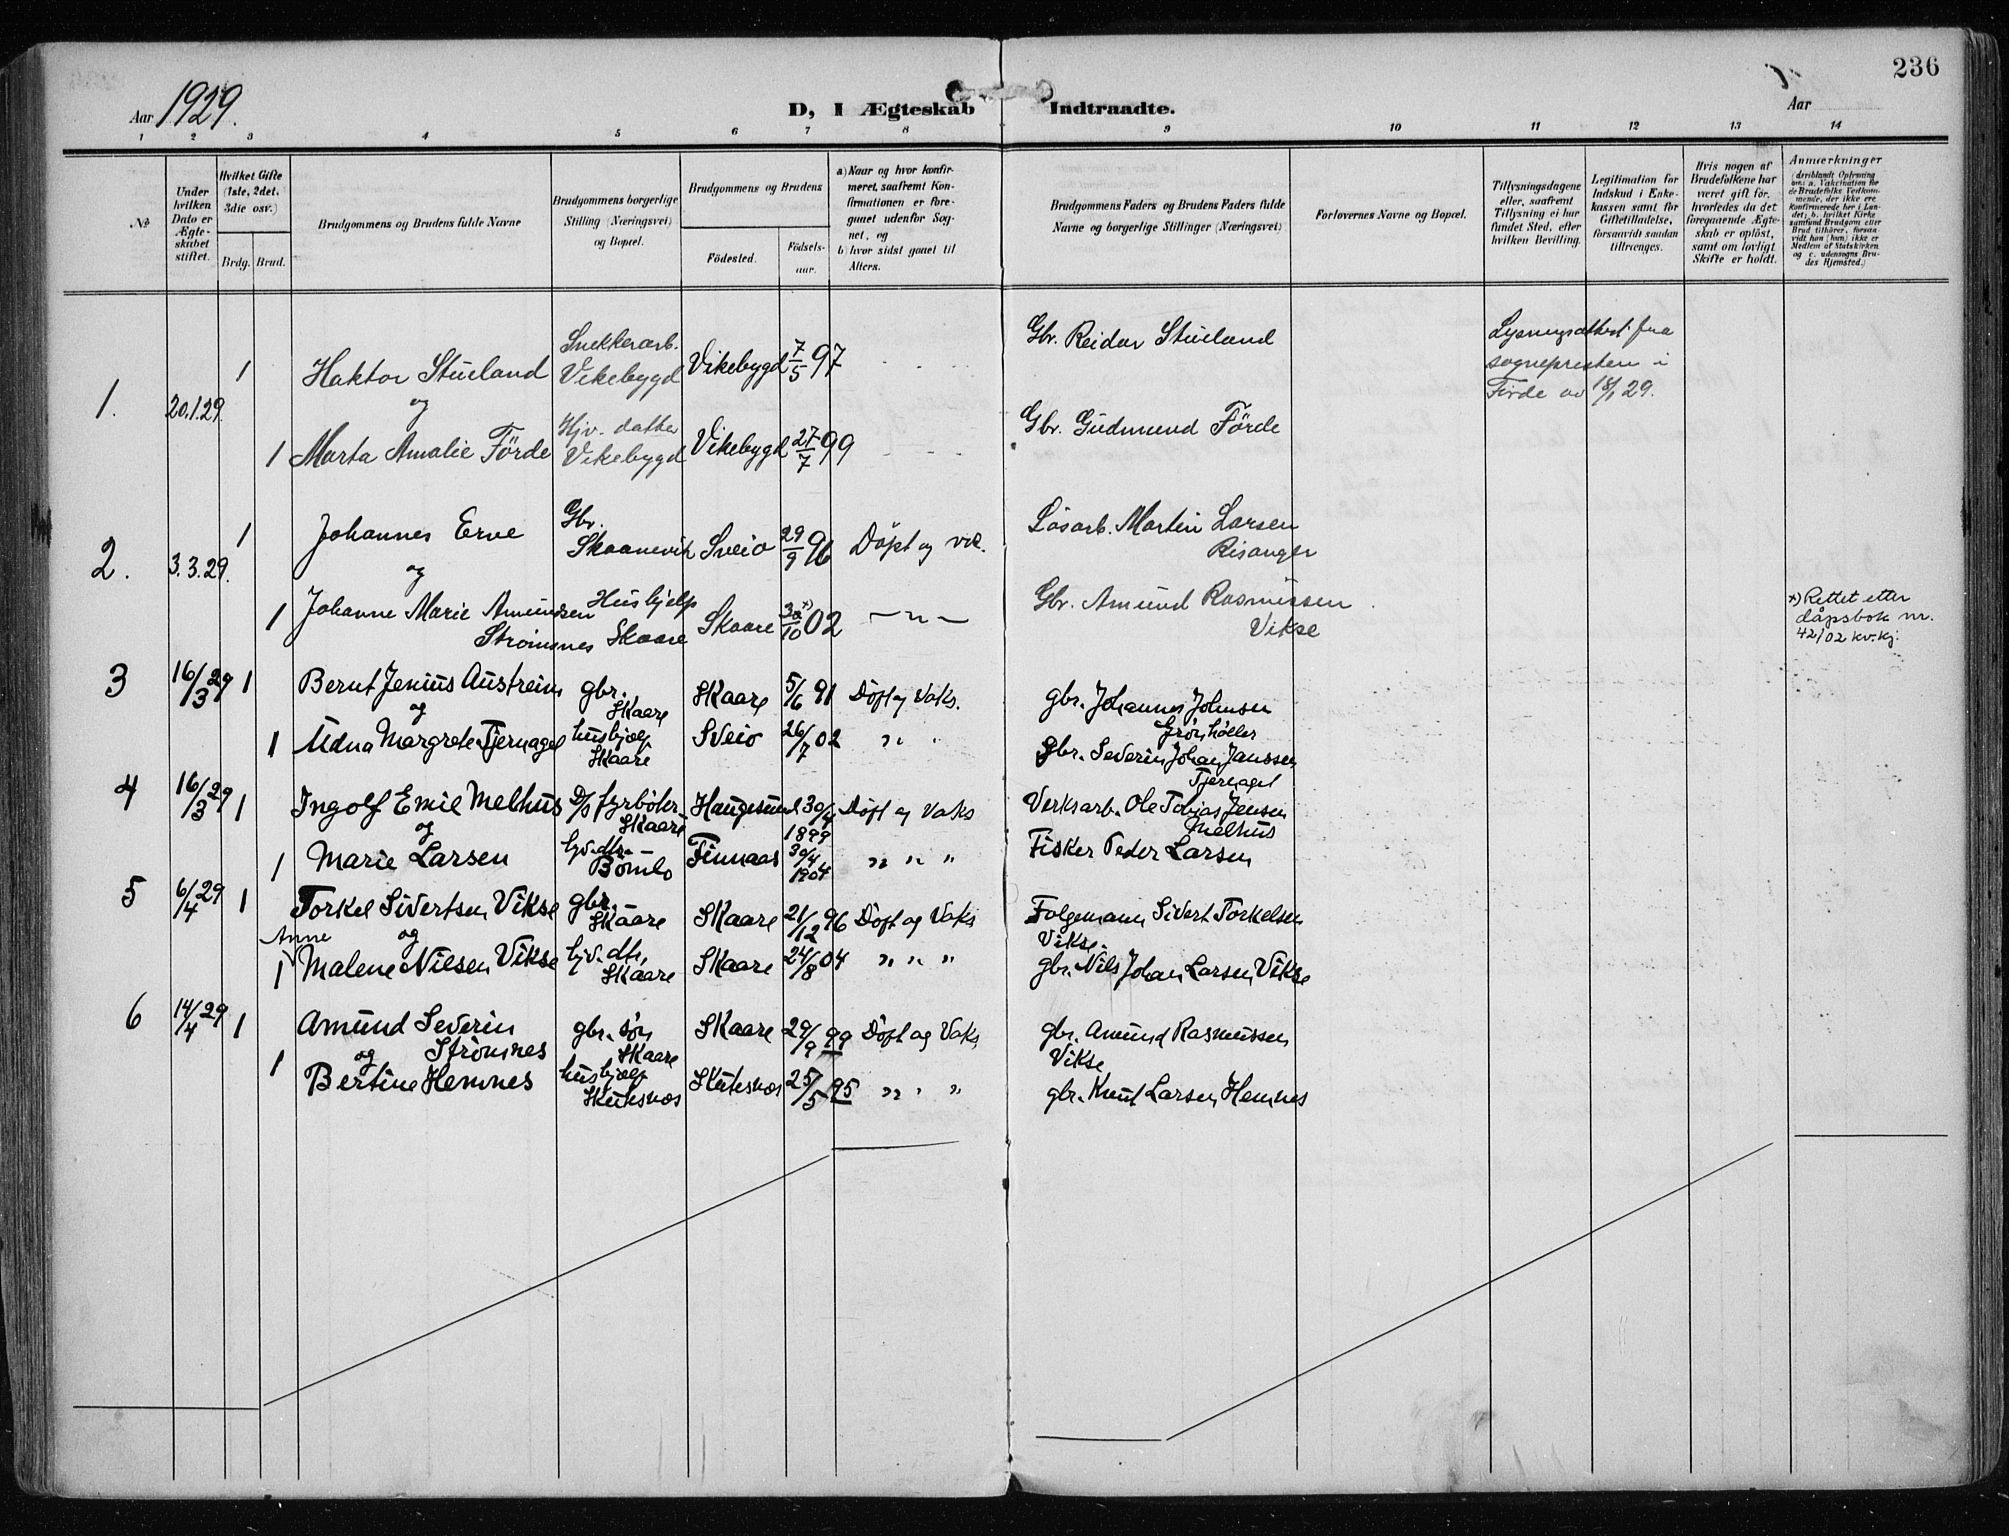 236
Aar 1929.
D, I Ægteskab Indtraadte.
Aar
1 2 3 4 5 6 7 8 9 10 11 12 13 14
№
Under hvilken Dato er Ægteskabet stiftet.
Hvilket Gifte (1ste, 2det, 3die osv.)
Brdg. Brud.
Brudgommens og Brudens fulde Navne
Brudgommens borgerlige Stilling (Næringsvei) og Bopæl.
Brudgommens og Brudens
Fødested.
Fødselsaar.
a) Naar og hvor konfirmeret, saafremt Konfirmationen er foregaaet udenfor Sognet, og
b) hvor sidst gaaet til Alters.
Brudgommens Faders og Brudens Faders fulde Navne og borgerlige Stillinger (Næringsvei)
Forlovernes Navne og Bopæl.
Tillysningsdagene eller, saafremt Tillysning ei har fundet Sted, efter hvilken Bevilling.
Legitimation for Indskud i Enkekassen samt for Giftetilladelse, forsaavidt saadan tiltrænges.
Hvis nogen af Brudefolkene har været gift før, hvorledes da det foregaaende Ægteskab er opløst, samt om lovligt Skifte er holdt.
Anmerkninger
(deriblandt Oplysning om: a. Vakcination for de Brudefolks Vedkommende, der ikke ere Konfirmerede her i Landet; b. hvilket Kirkesamfund Brudgom eller Brud tilhører, forsaavidt han (hun) ikke er Medlem af Statskirken og c. udensogns Brudes Hjemsted.)
1. 20.1.29. 1 Haktor Stueland Snekkerarb. Vikebygd Vikebygd 7/5 97 Gbr. Reidar Stueland Lysningsattest fra sognepresten i Förde av 18/1 29.
og
1 Marta Amalie Förde Hjv. datter Vikebygd Vikebygd 27/7 99 Gbr. Gudmund Förde
2. 3.3.29. 1 Johannes Erve Gbr. Skaanevik Sveio 29/9 96 Döpt og vac. Lösarb. Martin Larsen Risanger
og
1 Johanne Marie Amundsen Strömsnes Hushjelp Skaare Skaare 30/10 x) 02 —"— Gbr. Amund Rasmussen Vikse x) Rettet etter dåpsbok nr. 42/02 kv.kj.
3 16/3 29 1 Bernt Jenius Austreim gbr. Skaare Skaare 5/6 91 Döpt og Vaks. gbr. Johannes Johnsen
og
1 Udna Margrete Tjernagel husbjelp Skaare Sveio 26/7 02 " " gbr. Severin Johan Janssen Tjernagel
4 16/3 29 1 Ingolf Emil Melhus D/S fyrböter Skaare Haugesund 30/4 1899 Döpt og Vaks Verksarb. Ole Tobias Jensen Melhus
og
1 Marie Larsen hjv. dtr. Bömlo Finnaas 30/4 1904 " " " Fisker Peder Larsen
5 6/4 29 1 Torkel Sivertsen Vikse gbr. Skaare Skaare 21/12 96 Döpt og Vaks Folgemann Sivert Torkelsen Vikse.
og
1 Anne Malene Nilsen Vikse hjv. dtr. Skaare Skaare 24/8 04 " " " gbr. Nils Johan Larsen Vikse
6 14/4 29 1 Amund Severin Strömnes gbr. søn Skaare Skaare 29/9 99 Döpt og Vaks gbr. Amund Rasmussen Vikse
og
1 Bertine Hemnes husbjelp Skutesnæs Skutesnæs 25/5 95 " " " gbr. Knut Larsen Hemnes